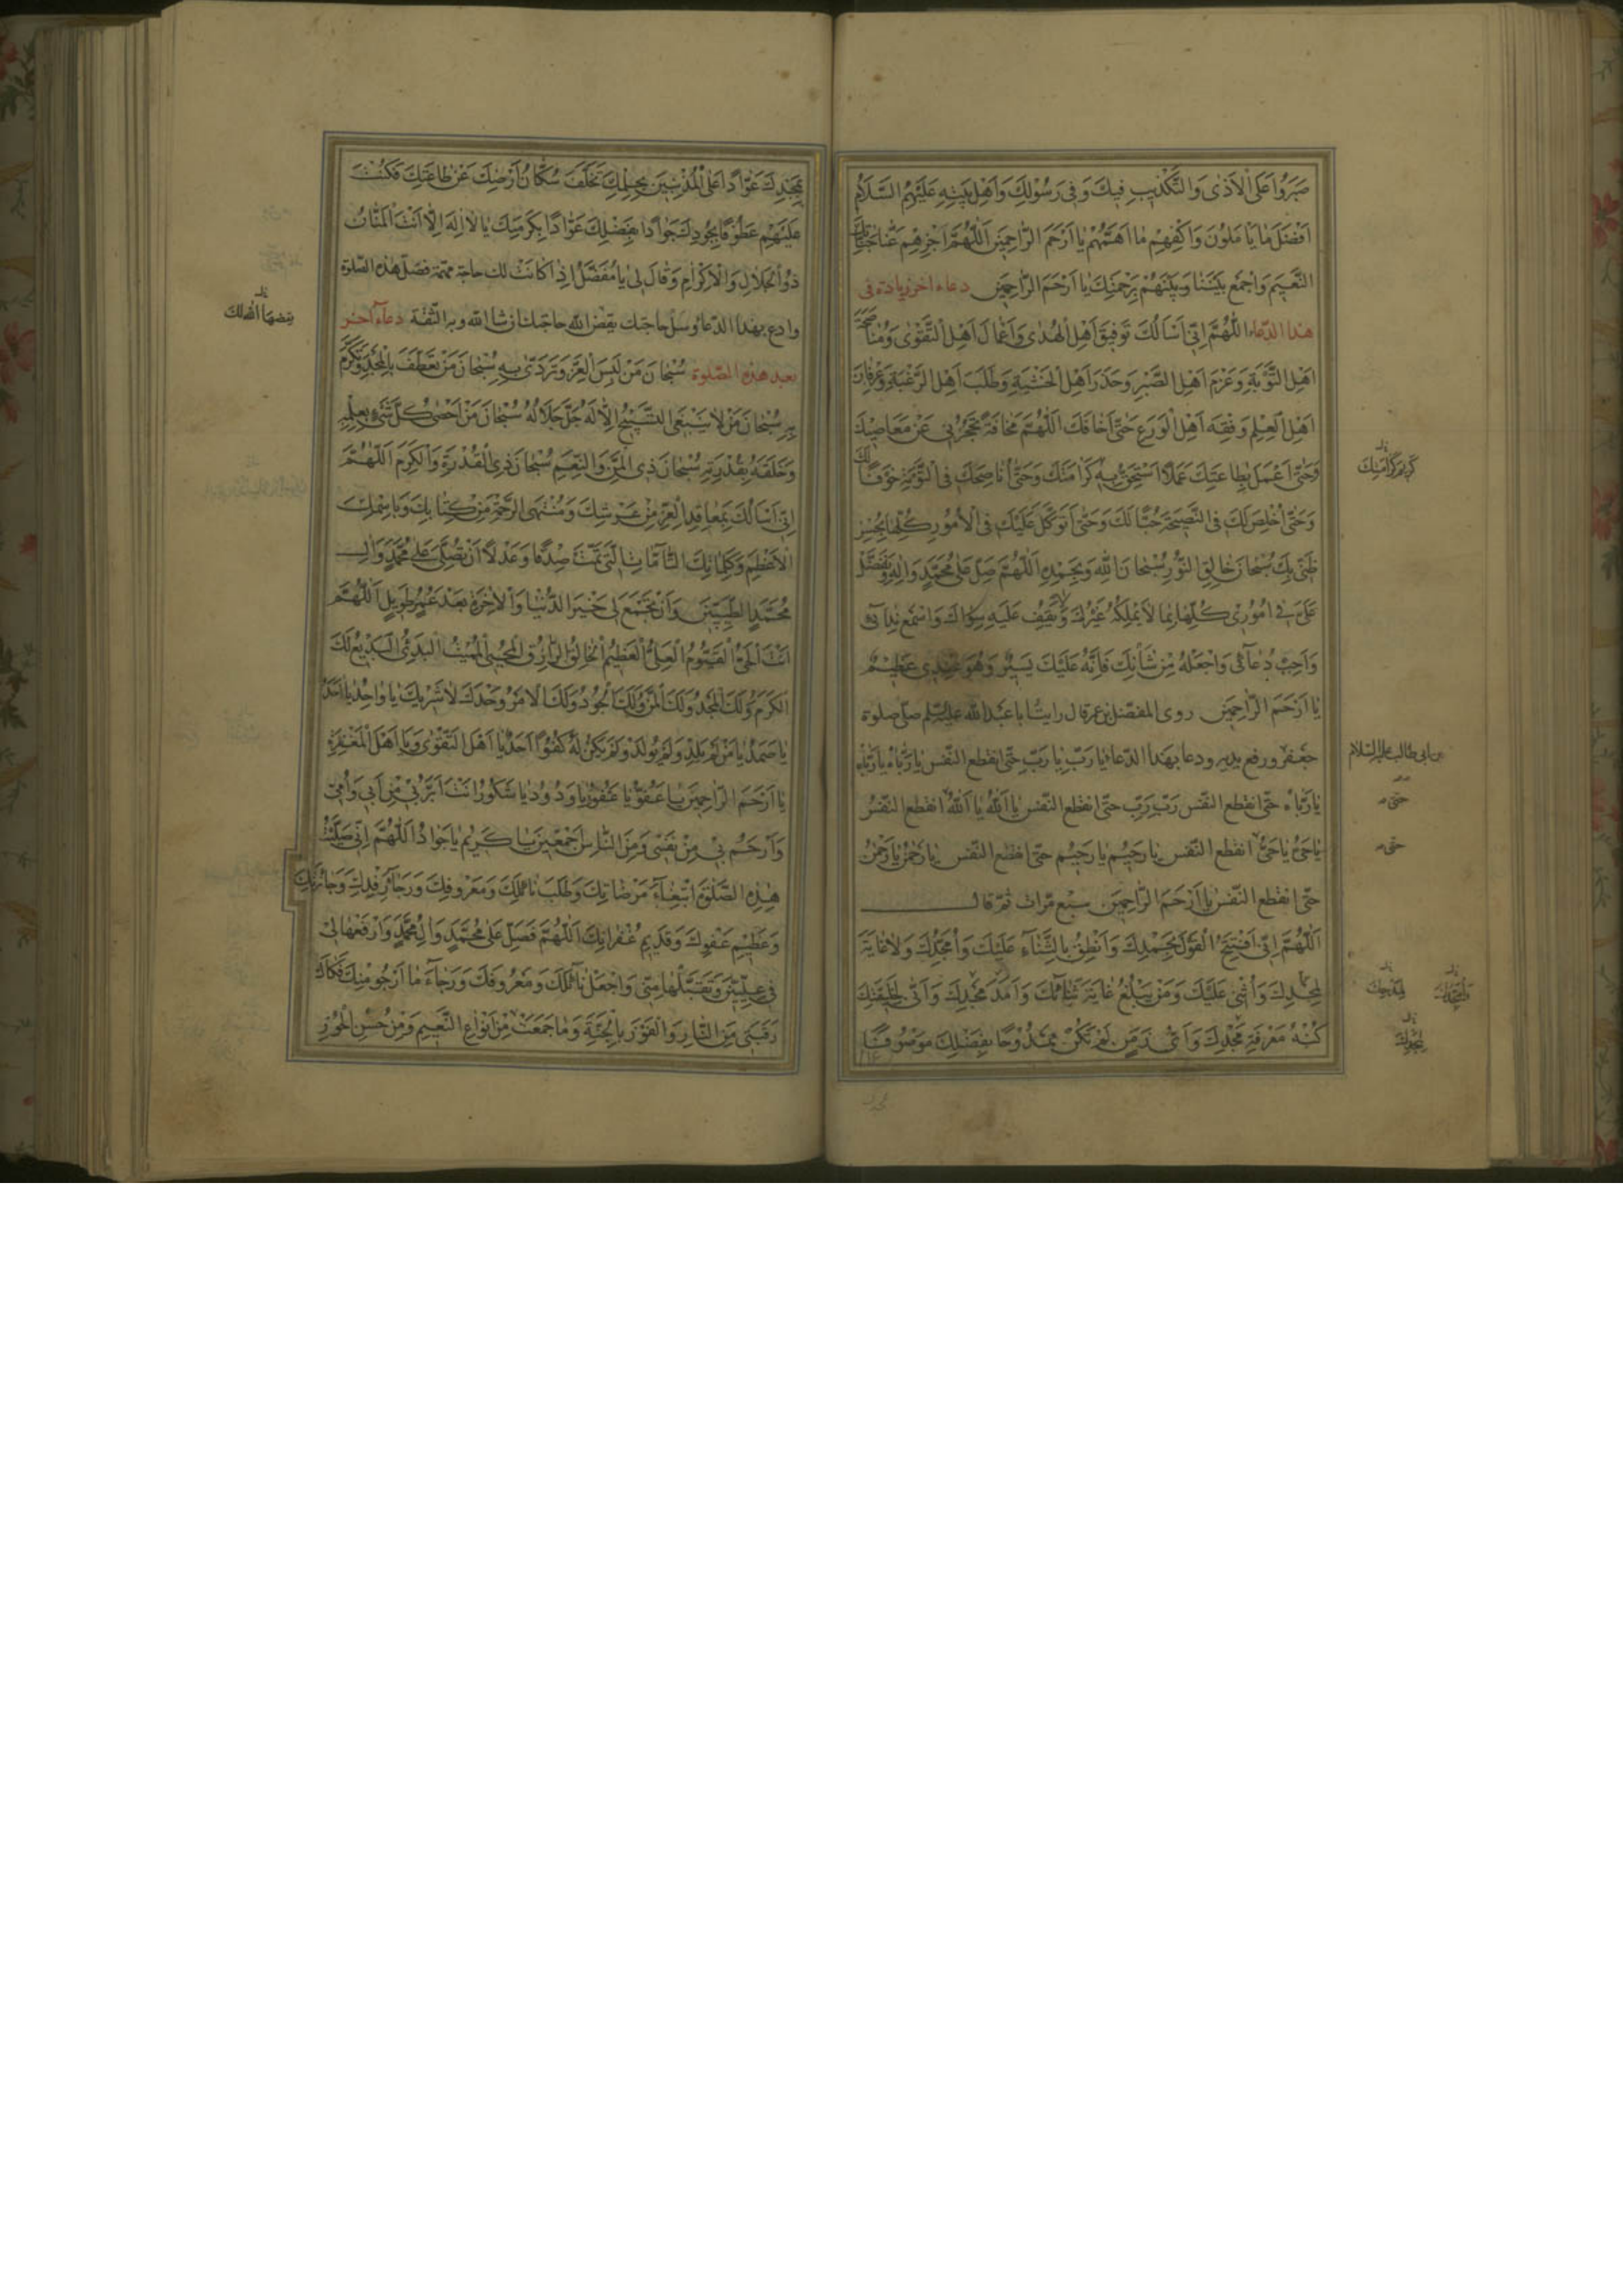 صَبَرُوا عَلَى الْأَذٰى وَالتَّكْذِيبِ فِيكَ وَفِي رَسُولِكَ وَأَهْلِ بَيْتِهِ عَلَيْهِمُ السَّلَامُ
أَفْضَلَ مَا يَأْمُلُونَ وَاكْفِهِمْ مَا أَهَمَّهُمْ يَا أَرْحَمَ الرَّاحِمِينَ اَللّٰهُمَّ اجْزِهِمْ عَنَّا جَنَّاتِكَ
النَّعِيمِ وَاجْمَعْ بَيْنَنَا وَبَيْنَهُمْ بِرَحْمَتِكَ يَا أَرْحَمَ الرَّاحِمِينَ دعاء اخر زيادة فى
هذا الدعاء اَللّٰهُمَّ إِنِّي أَسْأَلُكَ تَوْفِيقَ أَهْلِ الْهُدٰى وَأَعْمَالَ أَهْلِ التَّقْوٰى وَمُنَاصَحَةَ
أَهْلِ التَّوْبَةِ وَعَزْمَ أَهْلِ الصَّبْرِ وَحَذَرَ أَهْلِ الْخَشْيَةِ وَطَلَبَ أَهْلِ الرَّغْبَةِ وَعِرْفَانَ
أَهْلِ الْعِلْمِ وَفِقْهَ أَهْلِ الْوَرَعِ حَتّٰى أَخَافَكَ اَللّٰهُمَّ مَخَافَةً تَحْجُزُنِي عَنْ مَعَاصِيكَ
وَحَتّٰى أَعْمَلَ بِطَاعَتِكَ عَمَلًا أَسْتَحِقُّ بِهِ كَرَامَتَكَ وَحَتّٰى أُنَاصِحَكَ فِي التَّوْبَةِ خَوْفًا لَكَ
وَحَتّٰى أُخْلِصَ لَكَ فِي النَّصِيحَةِ حُبًّا لَكَ وَحَتّٰى أَتَوَكَّلَ عَلَيْكَ فِي الْأُمُورِ كُلِّهَا بِحُسْنِ
ظَنِّي بِكَ سُبْحَانَ خَالِقِ النُّورِ سُبْحَانَ اللّٰهِ وَبِحَمْدِهِ اَللّٰهُمَّ صَلِّ عَلٰى مُحَمَّدٍ وَآلِهِ وَتَفَضَّلْ
عَلَيَّ فِي أُمُورِي كُلِّهَا بِمَا لَا يَمْلِكُهُ غَيْرُكَ وَلَا يَقِفُ عَلَيْهِ سِوَاكَ وَاسْمَعْ نِدَائِي
وَأَجِبْ دُعَائِي وَاجْعَلْهُ مِنْ شَأْنِكَ فَإِنَّهُ عَلَيْكَ يَسِيرٌ وَهُوَ عِنْدِي عَظِيمٌ
يَا أَرْحَمَ الرَّاحِمِينَ روى المفضل بن عمر قال رايت ابا عبد الله عليه السلم صلى صلوة
جعفر ورفع يديه ودعا بهذا الدعاء يَا رَبِّ يَا رَبِّ حتى انقطع النفس يَا رَبَّاهُ يَا رَبَّاهُ
يَا رَبَّاهُ حتى انقطع النفس رَبِّ رَبِّ حتى انقطع النفس يَا اَللّٰهُ يَا اَللّٰهُ انقطع النفس
يَا حَيُّ يَا حَيُّ انقطع النفس يَا رَحِيمُ يَا رَحِيمُ حتى انقطع النفس يَا رَحْمٰنُ يَا رَحْمٰنُ
حتى انقطع النفس يَا أَرْحَمَ الرَّاحِمِينَ سبع مرات ثم قال
اَللّٰهُمَّ إِنِّي أَفْتَتِحُ الْقَوْلَ بِحَمْدِكَ وَأَنْطِقُ بِالثَّنَاءِ عَلَيْكَ وَأُمَجِّدُكَ وَلَا غَايَةَ
لِمَجْدِكَ وَأُثْنِي عَلَيْكَ وَمَنْ يَبْلُغُ غَايَةَ ثَنَائِكَ وَأَمَدَ مَجْدِكَ وَأَنّٰى لِخَلِيقَتِكَ
كُنْهُ مَعْرِفَةِ مَجْدِكَ وَأَيُّ زَمَنٍ لَمْ تَكُنْ مَمْدُوحًا بِفَضْلِكَ مَوْصُوفًا
كريم كرامتك
بن ابي طالب عليه السلام
حتى
حتى
بِمَجْدِكَ عَوَّادًا عَلَى الْمُذْنِبِينَ بِحِلْمِكَ تَخَلَّفَ سُكَّانُ أَرْضِكَ عَنْ طَاعَتِكَ فَكُنْتَ
عَلَيْهِمْ عَطُوفًا بِجُودِكَ جَوَادًا بِفَضْلِكَ عَوَّادًا بِكَرَمِكَ يَا لَا إِلٰهَ إِلَّا أَنْتَ الْمَنَّانُ
ذُو الْجَلَالِ وَالْإِكْرَامِ وَقَالَ لِي يَا مُفَضَّلُ إِذَا كَانَتْ لك حاجة مهمة فصل هذه الصلوة
وادع بهذا الدعاء وسل حاجتك يقض الله حاجتك ان شاء الله وبه الثقة دعاء آخر
بعد هذه الصلوة سُبْحَانَ مَنْ لَبِسَ الْعِزَّ وَتَرَدّٰى بِهِ سُبْحَانَ مَنْ تَعَطَّفَ بِالْمَجْدِ وَتَكَرَّمَ
بِهِ سُبْحَانَ مَنْ لَا يَنْبَغِي التَّسْبِيحُ إِلَّا لَهُ جَلَّ جَلَالُهُ سُبْحَانَ مَنْ أَحْصٰى كُلَّ شَيْءٍ بِعِلْمِهِ
وَخَلَقَهُ بِقُدْرَتِهِ سُبْحَانَ ذِي الْمَنِّ وَالنِّعَمِ سُبْحَانَ ذِي الْقُدْرَةِ وَالْكَرَمِ اَللّٰهُمَّ
إِنِّي أَسْأَلُكَ بِمَعَاقِدِ الْعِزِّ مِنْ عَرْشِكَ وَمُنْتَهَى الرَّحْمَةِ مِنْ كِتَابِكَ وَبِاسْمِكَ
الْأَعْظَمِ وَكَلِمَاتِكَ التَّامَّاتِ الَّتِي تَمَّتْ صِدْقًا وَعَدْلًا أَنْ تُصَلِّيَ عَلٰى مُحَمَّدٍ وَآلِ
مُحَمَّدٍ الطَّيِّبِينَ وَأَنْ تَجْمَعَ لِي خَيْرَ الدُّنْيَا وَالْآخِرَةِ بَعْدَ عُمُرٍ طَوِيلٍ اَللّٰهُمَّ
أَنْتَ الْحَيُّ الْقَيُّومُ الْعَلِيُّ الْعَظِيمُ الْخَالِقُ الرَّازِقُ الْمُحْيِي الْمُمِيتُ الْبَدِيءُ الْبَدِيعُ لَكَ
الْكَرَمُ وَلَكَ الْمَجْدُ وَلَكَ الْمَنُّ وَلَكَ الْجُودُ وَلَكَ الْأَمْرُ وَحْدَكَ لَا شَرِيكَ لَكَ يَا وَاحِدُ يَا أَحَدُ
يَا صَمَدُ يَا مَنْ لَمْ يَلِدْ وَلَمْ يُولَدْ وَلَمْ يَكُنْ لَهُ كُفُوًا أَحَدٌ يَا أَهْلَ التَّقْوٰى وَيَا أَهْلَ الْمَغْفِرَةِ
يَا أَرْحَمَ الرَّاحِمِينَ يَا عَفُوُّ يَا غَفُورُ يَا وَدُودُ يَا شَكُورُ أَنْتَ أَبَرُّ بِي مِنْ أَبِي وَأُمِّي
وَأَرْحَمُ بِي مِنْ نَفْسِي وَمِنَ النَّاسِ أَجْمَعِينَ يَا كَرِيمُ يَا جَوَادُ اَللّٰهُمَّ إِنِّي صَلَّيْتُ
هٰذِهِ الصَّلٰوةَ ابْتِغَاءَ مَرْضَاتِكَ وَطَلَبَ نَائِلِكَ وَمَعْرُوفِكَ وَرَجَاءَ رِفْدِكَ وَجَائِزَتِكَ
وَعَظِيمِ عَفْوِكَ وَقَدِيمِ غُفْرَانِكَ اَللّٰهُمَّ فَصَلِّ عَلٰى مُحَمَّدٍ وَآلِ مُحَمَّدٍ وَارْفَعْهَا لِي
فِي عِلِّيِّينَ وَتَقَبَّلْهَا مِنِّي وَاجْعَلْ نَائِلَكَ وَمَعْرُوفَكَ وَرَجَاءَ مَا أَرْجُو مِنْكَ فَكَاكَ
رَقَبَتِي مِنَ النَّارِ وَالْفَوْزَ بِالْجَنَّةِ وَمَا جَمَعَتْ مِنْ أَنْوَاعِ النَّعِيمِ وَمِنْ حُسْنِ الْحُورِ
يقضها الله لك